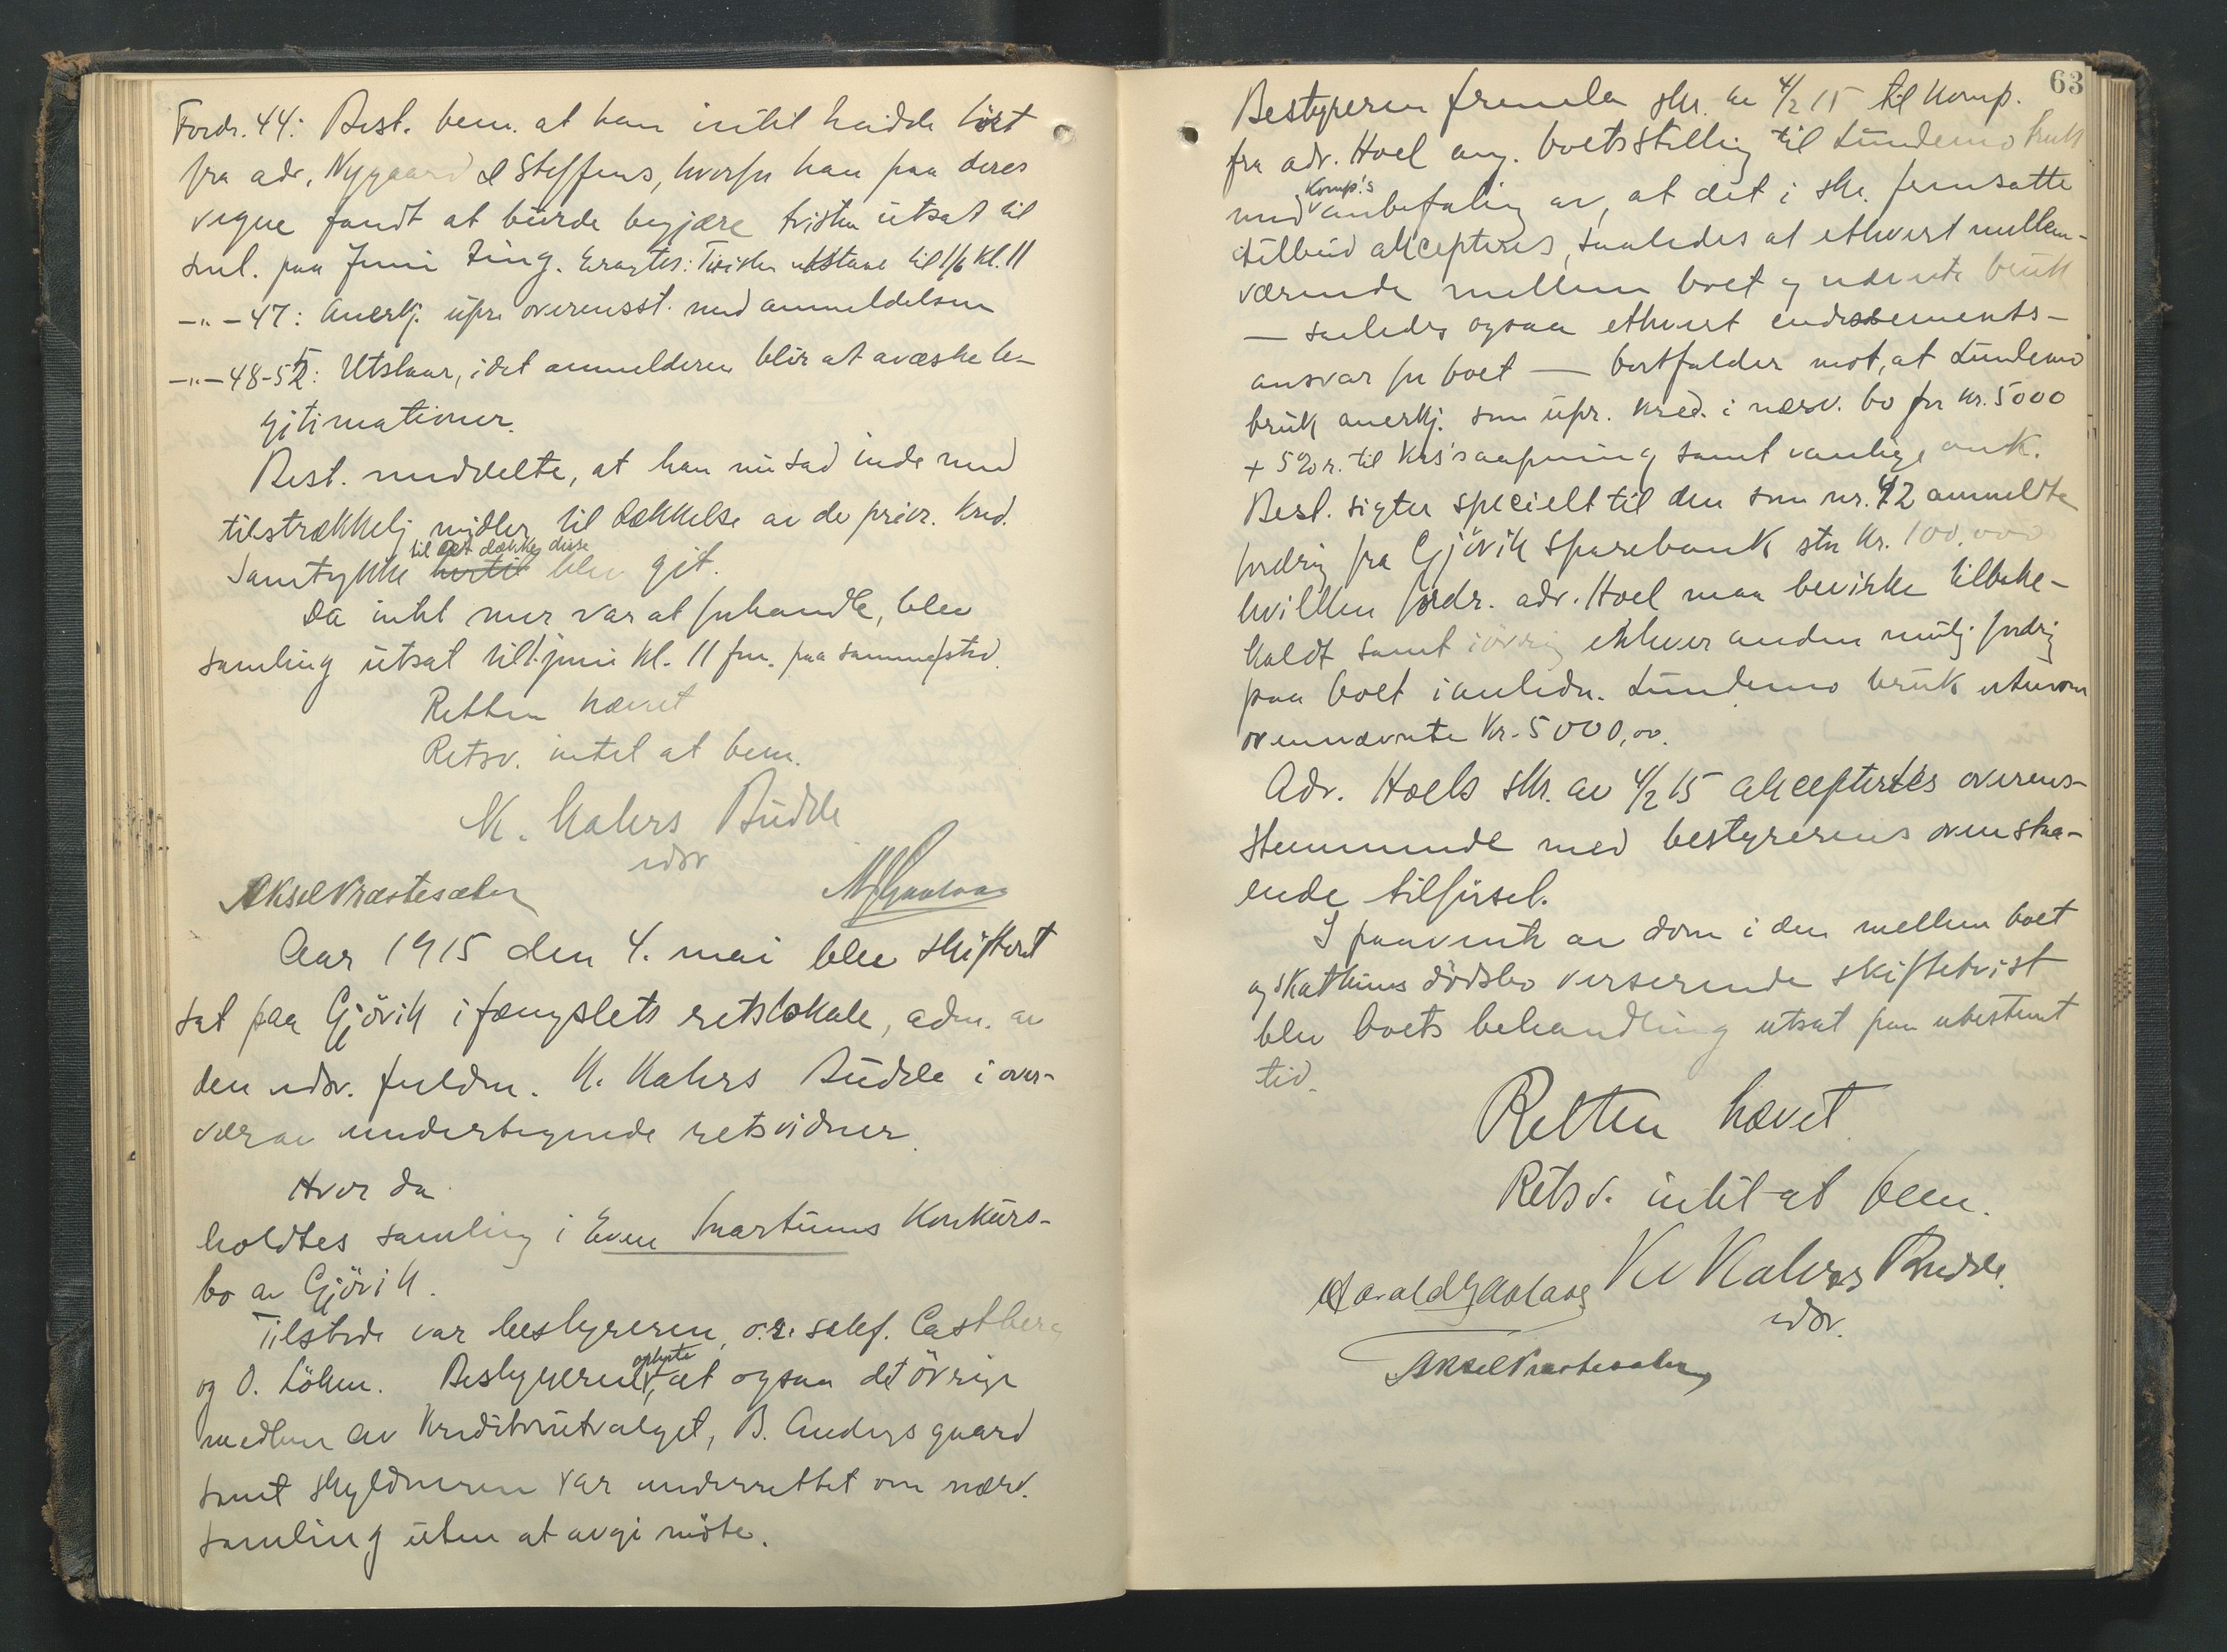 Fordr. 44: Best. bem. at han intet hadde hört
fra adv. Nygaard & Steffens, hvorfor han paa deres
vegne fandt at burde begjære tvisten utsat til
saml. paa Juni ting. Eragtes: Tvisten utstaar til 1/6 kl. 11
—"—47: Anerkj. upr. overensst. med anmeldelsen
—"—48-52: Utstaar, idet anmelderen blir at avæske le-
gitimationer.
Best. meddelte, at han nu sad inde med
tilstrækkelig midler til dækkelse av de privr. kred.
til at dække disse
Samtykke hertil blev git.
Da intet mer var at forhandle, blev
samling utsat til 1. juni kl. 11 fm. paa samme sted.
Retten hævet
Retsv. intet at bem.
K. Kahrs Budde
edsv
Aksel Præstesæter
Aar 1915 den 4. mai blev skifteret
sat paa Gjövik i fængslets retslokale, adm. av
den edsv. fuldm. K. Kahrs Budde i over-
vær av undertegnede retsvidner.
Hvor da
holdtes samling i Even Svartuums konkurs-
bo av Gjövik.
Tilstede var bestyreren, o.r. sakf. Castberg
og O. Löken. Bestyreren oplyste, at ogsaa det övrige
medlem av kreditorutvalget, B. Andersgaard
samt skyldneren var underrettet om nærv.
samling uten at avgi möte.
63
Bestyreren fremla skr. av 4/2 15 til komp.
fra adv. Hoel ang. boets stilling til Lundemo bruk
Komp.'s
med anbefaling av, at det i skr. fremsatte
tilbud akcepteres, saaledes at ethvert mellem-
værende mellem boet og nævnte bruk
— saaledes ogsaa ethvert endossements-
ansvar for boet — bortfalder mot, at Lundemo
bruk anerkj. som upr. kred. i nærv. bo for kr. 5000
+ 5% r. til krs's aapning samt vanlige omk.
Best. sigter specielt til den som nr. 42 anmeldte
fordring fra Gjövik Sparebank stor kr. 100.000
hvilken fordr. adv. Hoel maa bevirke tilbake-
kaldt samt iövrig enhver anden mulig fordring
paa boet i anledn. Lundemo bruk utenom
ovennævnte kr. 5000,00.
Adv. Hoels skr. av 4/2 15 akcepteres overens-
stemmende med bestyrerens ovenstaa-
ende tilförsel.
I paavente av dom i den mellem boet
og Skattkums dödsbo verserende skiftetvist
blev boets behandling utsat paa ubestemt
tid.
Retten hævet.
Retsv. intet at bem.
K. Kahrs Budde.
Harald Gaalaas
edsv.
Aksel Præstesæter